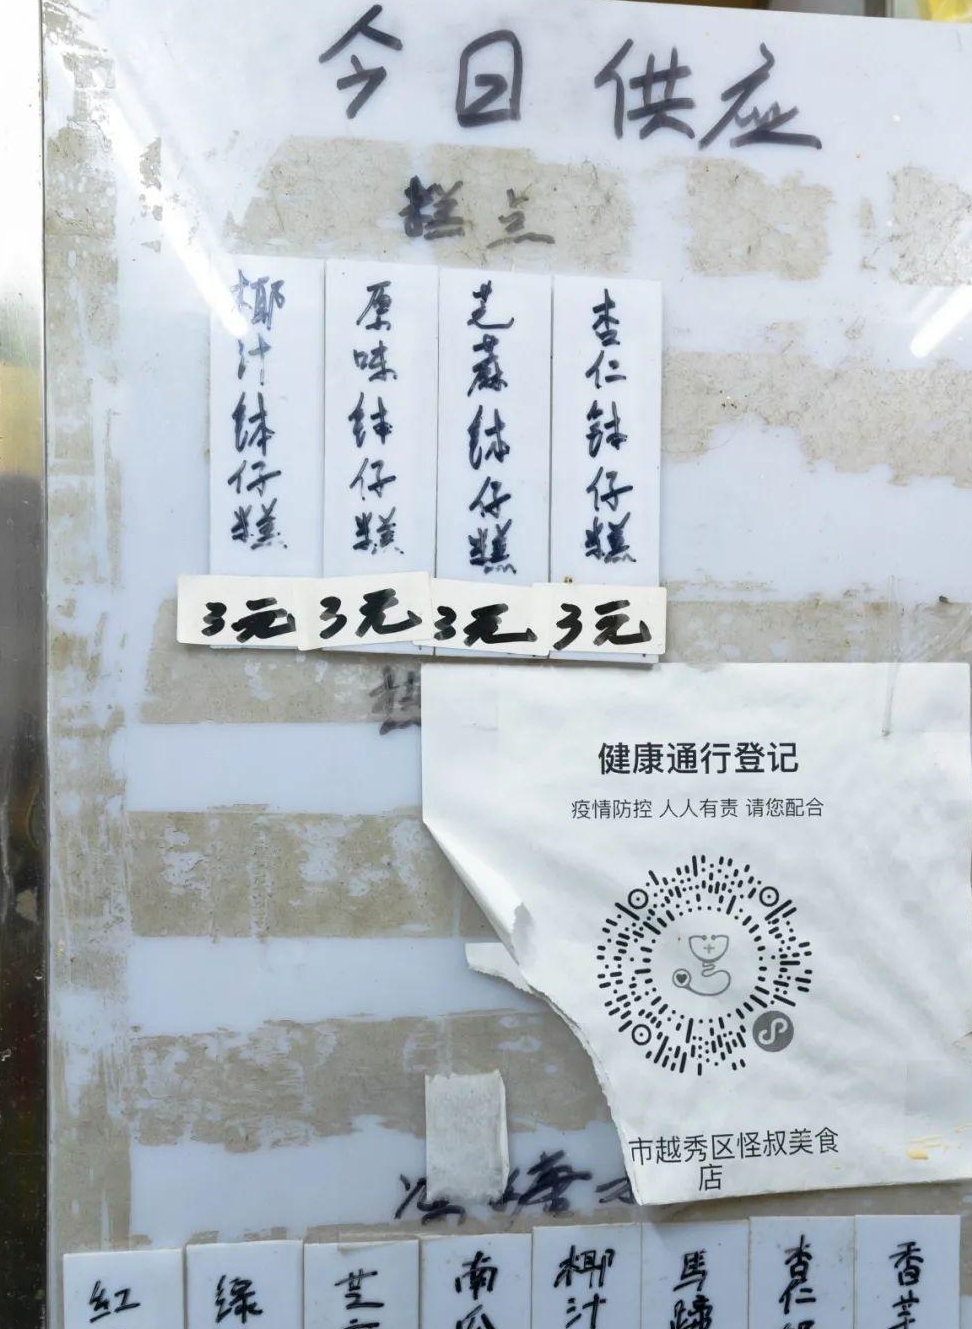 今日供应
糕点
椰汁钵仔糕
3元
原味钵仔糕
3元
芝麻钵仔糕
3元
杏仁钵仔糕
3元
健康通行登记
疫情防控 人人有责 请您配合
市越秀区怪叔美食
店
红
绿
芝
南瓜
椰汁
馬蹄
杏仁
香芋